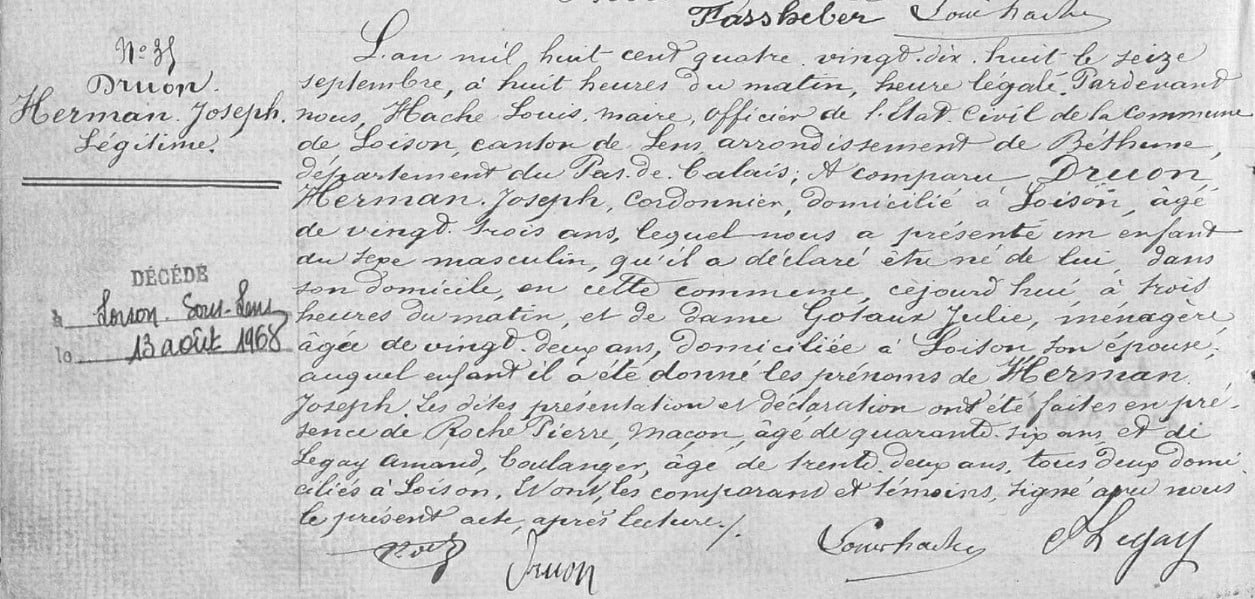 Fassheber Louis hache
N° 35
Druon
Herman. Joseph.
Légitime.
DÉCÉDÉ
à Loison-Sous-Lens
le 13 août 1968
L'an mil huit cent quatre. vingt. dix. huit le seize
septembre, à huit heures du matin, heure légale. Pardevant
nous, Hache Louis, maire, Officier de l'État Civil de la Commune
de Loison, canton de Lens, arrondissement de Béthune,
département du Pas. de. Calais; A comparu Druon
Herman. Joseph, Cordonnier, domicilié à Loison, âgé
de vingt. trois ans, lequel nous a présenté un enfant
du sexe masculin, qu'il a déclaré être né de lui, dans
son domicile, en cette commune, cejourd'hui, à trois
heures du matin, et de dame Gotaux Julie, ménagère
âgée de vingt. deux ans, domiciliée à Loison son épouse;
auquel enfant il a été donné les prénoms de Herman.
Joseph. Les dites présentation et déclaration ont été faites en pré-
sence de Roche Pierre, Maçon, âgé de quarante. six ans, et de
Legay Amand, boulanger, âgé de trente. deux ans, tous deux domi-
ciliés à Loison. Et ont, les comparant et témoins, signé avec nous
le présent acte, après lecture./.
Druon Louis hache Legay